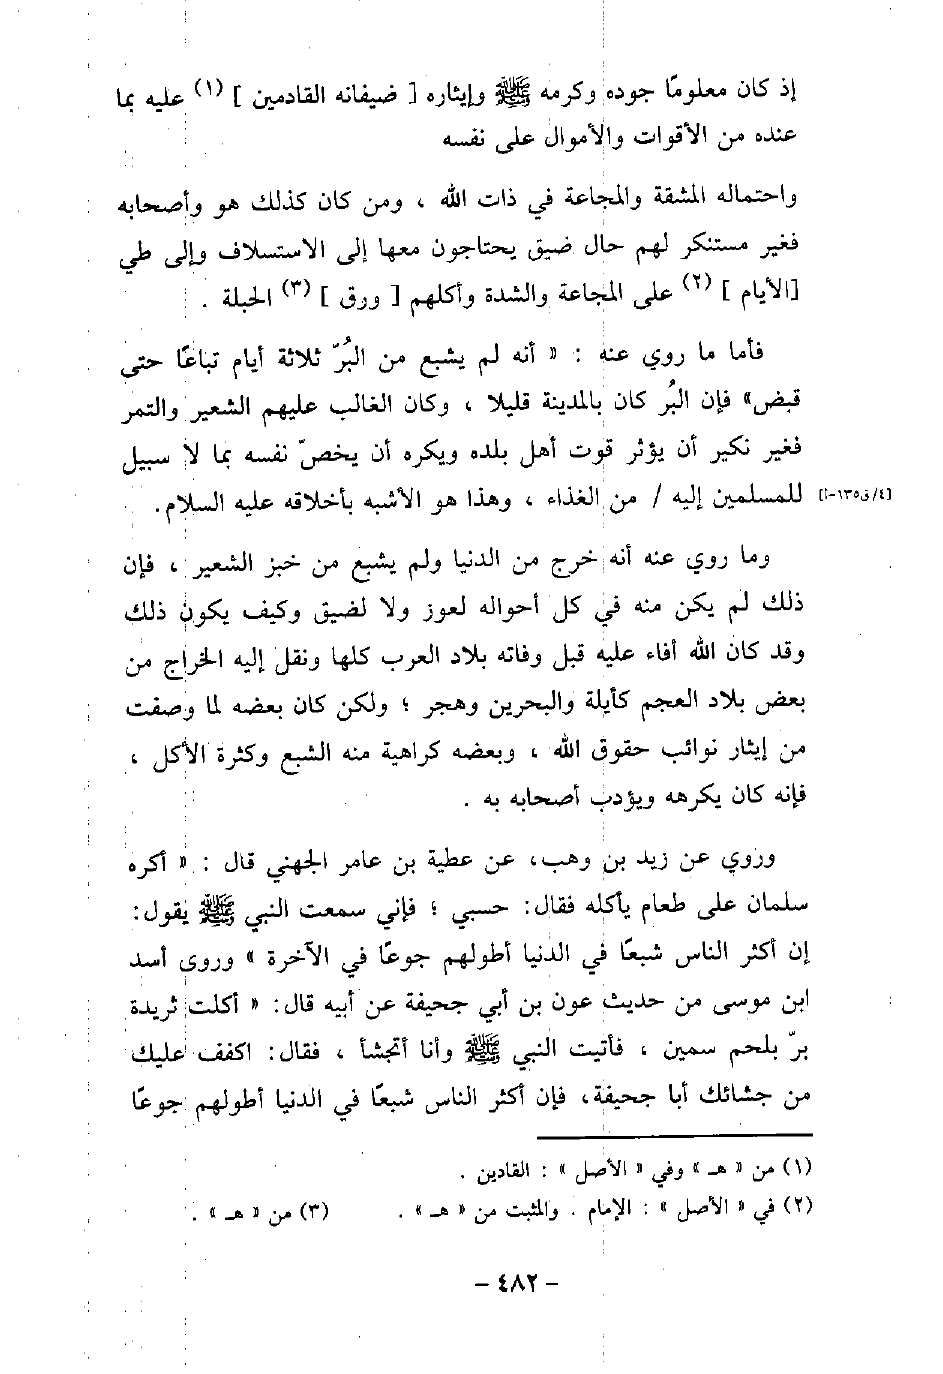 إذ كان معلومًا جوده وكرمه ﷺ وإيثاره [ ضيفانه القادمين ] (١) عليه بما
عنده من الأقوات والأموال على نفسه
واحتماله المشقة والمجاعة في ذات الله ، ومن كان كذلك هو وأصحابه
فغير مستنكر لهم حال ضيق يحتاجون معها إلى الاستسلاف وإلى طي
[الأيام ] (٢) على المجاعة والشدة وأكلهم [ ورق ] (٣) الحبلة .
فأما ما روي عنه : « أنه لم يشبع من البُرّ ثلاثة أيام تباعًا حتى
قبض» فإن البُر كان بالمدينة قليلا ، وكان الغالب عليهم الشعير والتمر
فغير نكير أن يؤثر قوت أهل بلده ويكره أن يخصّ نفسه بما لا سبيل
للمسلمين إليه / من الغذاء ، وهذا هو الأشبه بأخلاقه عليه السلام.
[٤/ق١٣٥-أ]
وما روي عنه أنه خرج من الدنيا ولم يشبع من خبز الشعير ، فإن
ذلك لم يكن منه في كل أحواله لعوز ولا لضيق وكيف يكون ذلك
وقد كان الله أفاء عليه قبل وفاته بلاد العرب كلها ونقل إليه الخراج من
بعض بلاد العجم كأيلة والبحرين وهجر ؛ ولكن كان بعضه لما وصفت
من إيثار نوائب حقوق الله ، وبعضه كراهية منه الشبع وكثرة الأكل ،
فإنه كان يكرهه ويؤدب أصحابه به .
وروي عن زيد بن وهب، عن عطية بن عامر الجهني قال : « أكره
سلمان على طعام يأكله فقال: حسبي ؛ فإني سمعت النبي ﷺ يقول:
إن أكثر الناس شبعًا في الدنيا أطولهم جوعًا في الآخرة » وروى أسد
ابن موسى من حديث عون بن أبي جحيفة عن أبيه قال: « أكلت ثريدة
برّ بلحم سمين ، فأتيت النبي ﷺ وأنا أتجشأ ، فقال: اكفف عليك
من جشائك أبا جحيفة، فإن أكثر الناس شبعًا في الدنيا أطولهم جوعًا
(١) من « هـ » وفي « الأصل » : القادين .
(٢) في « الأصل » : الإمام . والمثبت من « هـ » . (٣) من « هـ » .
– ٤٨٢ –